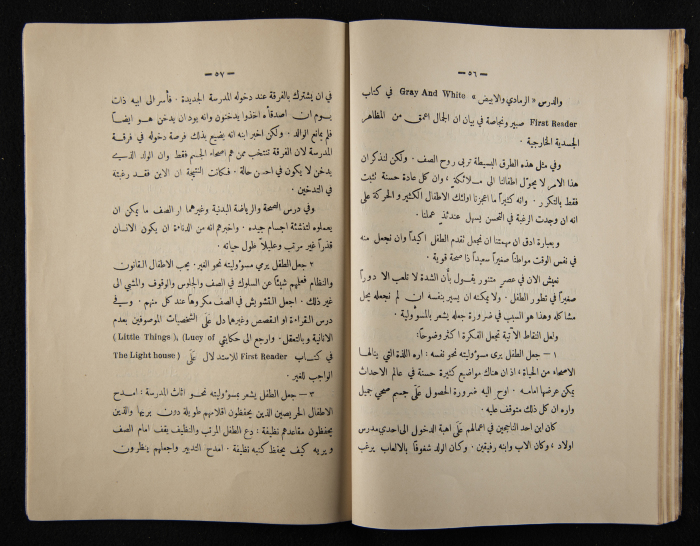 — ٥٦ —
والدرس « الرمادي والابيض » Gray And White في كتاب
First Reader صبير ونجاصة في بيان ان الجمال اعمق من المظاهر
الجسدية الخارجية ·
وفي مثل هذه الطرق البسيطة تربى روح الصف · ولكن لنذكر ان
هذا الامر لا يحوّل اطفالنا الى ملائكة ، وان كل عادة حسنة تثبت
فقط بالتكرر · وانه كثيراً ما اعجزنا اولئك الاطفال الكثيرو الحركة على
انه ان وجدت الرغبة في التحسن يسهل عندئذٍ عملنا ·
وبعبارة ادق ان مهمتنا ان نجعل تقدم الطفل اكيداً وان نجعل منه
في نفس الوقت مواطناً صغيراً سعيداً ذا صحة قوية ·
نعيش الان في عصر متنور يقول بأن الشدة لا تلعب الا دوراً
صغيراً في تطور الطفل · ولا يمكنه ان يسير بنفسه ان لم نجعله يحل
مشاكله وهذا هو السبب في ضرورة جعله يشعر بالمسؤولية ·
ولعل النقاط الآتية تجعل الفكرة اكثر وضوحاً:
١ — جعل الطفل يرى مسؤوليته نحو نفسه : اره اللذة التي ينالها
الاصحاء من الحياة ، اذ ان هناك مواضيع كثيرة حسنة في عالم الاحداث
يمكن عرضها امامه · اوح اليه ضرورة الحصول على جسم صحي جميل
واره ان كل ذلك متوقف عليه ·
كان ابن احد الناجحين في اعمالهم على اهبة الدخول الى احدى مدارس
اولاد ، وكان الاب وابنه رفيقين · وكان الولد شغوفاً بالالعاب يرغب
— ٥٧ —
في ان يشترك بالفرقة عند دخوله المدرسة الجديدة · فأسر الى ابيه ذات
يوم ان اصدقاءه اخذوا يدخنون وانه يود ان يدخن هو ايضاً
فلم يمانع الوالد · ولكن اخبر ابنه انه يضيع بذلك فرصة دخوله في فرقة
المدرسة لان الفرقة تنتخب ممن هم اصحاء الجسم فقط وان الولد الذي
يدخن لا يكون في احسن حالة · فكانت النتيجة ان الابن فقد رغبته
في التدخين ·
وفي درس الصحة والرياضة البدنية وغيرهما ار الصف ما يمكن ان
يعملوه لتنشئة اجسام جيده · واخبرهم انه من الدناءة ان يكون الانسان
قذراً غير مرتب وعليلاً طول حياته ·
٢ جعل الطفل يرى مسؤوليته نحو الغير · يحب الاطفال القانون
والنظام فعلمهم شيئاً عن السلوك في الصف والجلوس والوقوف والمشي الى
غير ذلك · اجعل التشويش في الصف مكروهاً عند كل منهم · وفي
درس القراءة او القصص وغيرهما دل على الشخصيات الموصوفين بعدم
الانانية وبالتعقل · وارجع الى حكايتي (Little Things), (Lucy of
The Light house) في كتاب First Reader للاستدلال على
الواجب للغير ·
٣ — جعل الطفل يشعر بمسؤوليته نحو اثاث المدرسة : امدح
الاطفال الحريصين الذين يحفظون اقلامهم طويلة دون بريها والذين
يحفظون مقاعدهم نظيفة : دع الطفل المرتب والنظيف يقف امام الصف
ويريه كيف يحفظ كتبه نظيفة · امدح التدبير واجعلهم ينظرون